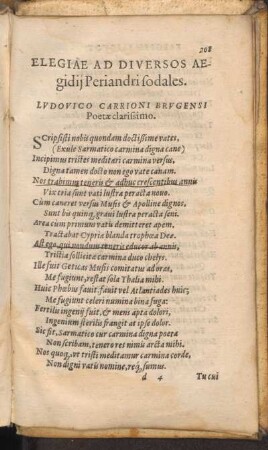 208
ELEGIAE AD DIVERSOS AE-
gidij Periandri sodales.
LVDOVICO CARRIONI BRVGENSI
Poetæ clarissimo.
SCripsisti nobis quondam doctissime vates,
(Exule Sarmatico carmina digna cane)
Incipimus tristes meditari carmina versus,
Digna tamen docto non ego vate canam.
Nos trahimur teneris & adhuc crescentibus annis
Vix tria sunt vati lustra peracta nouo.
Cùm caneret versus Musis & Apolline dignos,
Sunt bis quinq, graui lustra peracta seni.
Area cùm primum vatis demitteret apem,
Tractabat Cypria blanda trophæa Deæ.
Ast ego qui nondum teneris educor ab annis,
Tristia sollicitæ carmina duco chelys.
Ille fuit Geticas Musis comitatus ad oras,
Me fugiunt, restat sola Thalia mihi.
Huic Phœbus fauit, fauit vel Atlantiades huic;
Me fugiunt celeri numina bina fuga:
Fertilis ingenij fuit, & mens apta dolori,
Ingenium sterilis frangit at ipse dolor.
Sic fit, Sarmatico cur carmina digna poeta
Non scribam, tenero res nimis arcta mihi.
Nos quoq, ve tristi meditamur carmina corde,
Non digni vatis nomine, req, sumus.
d 4 Tuchi